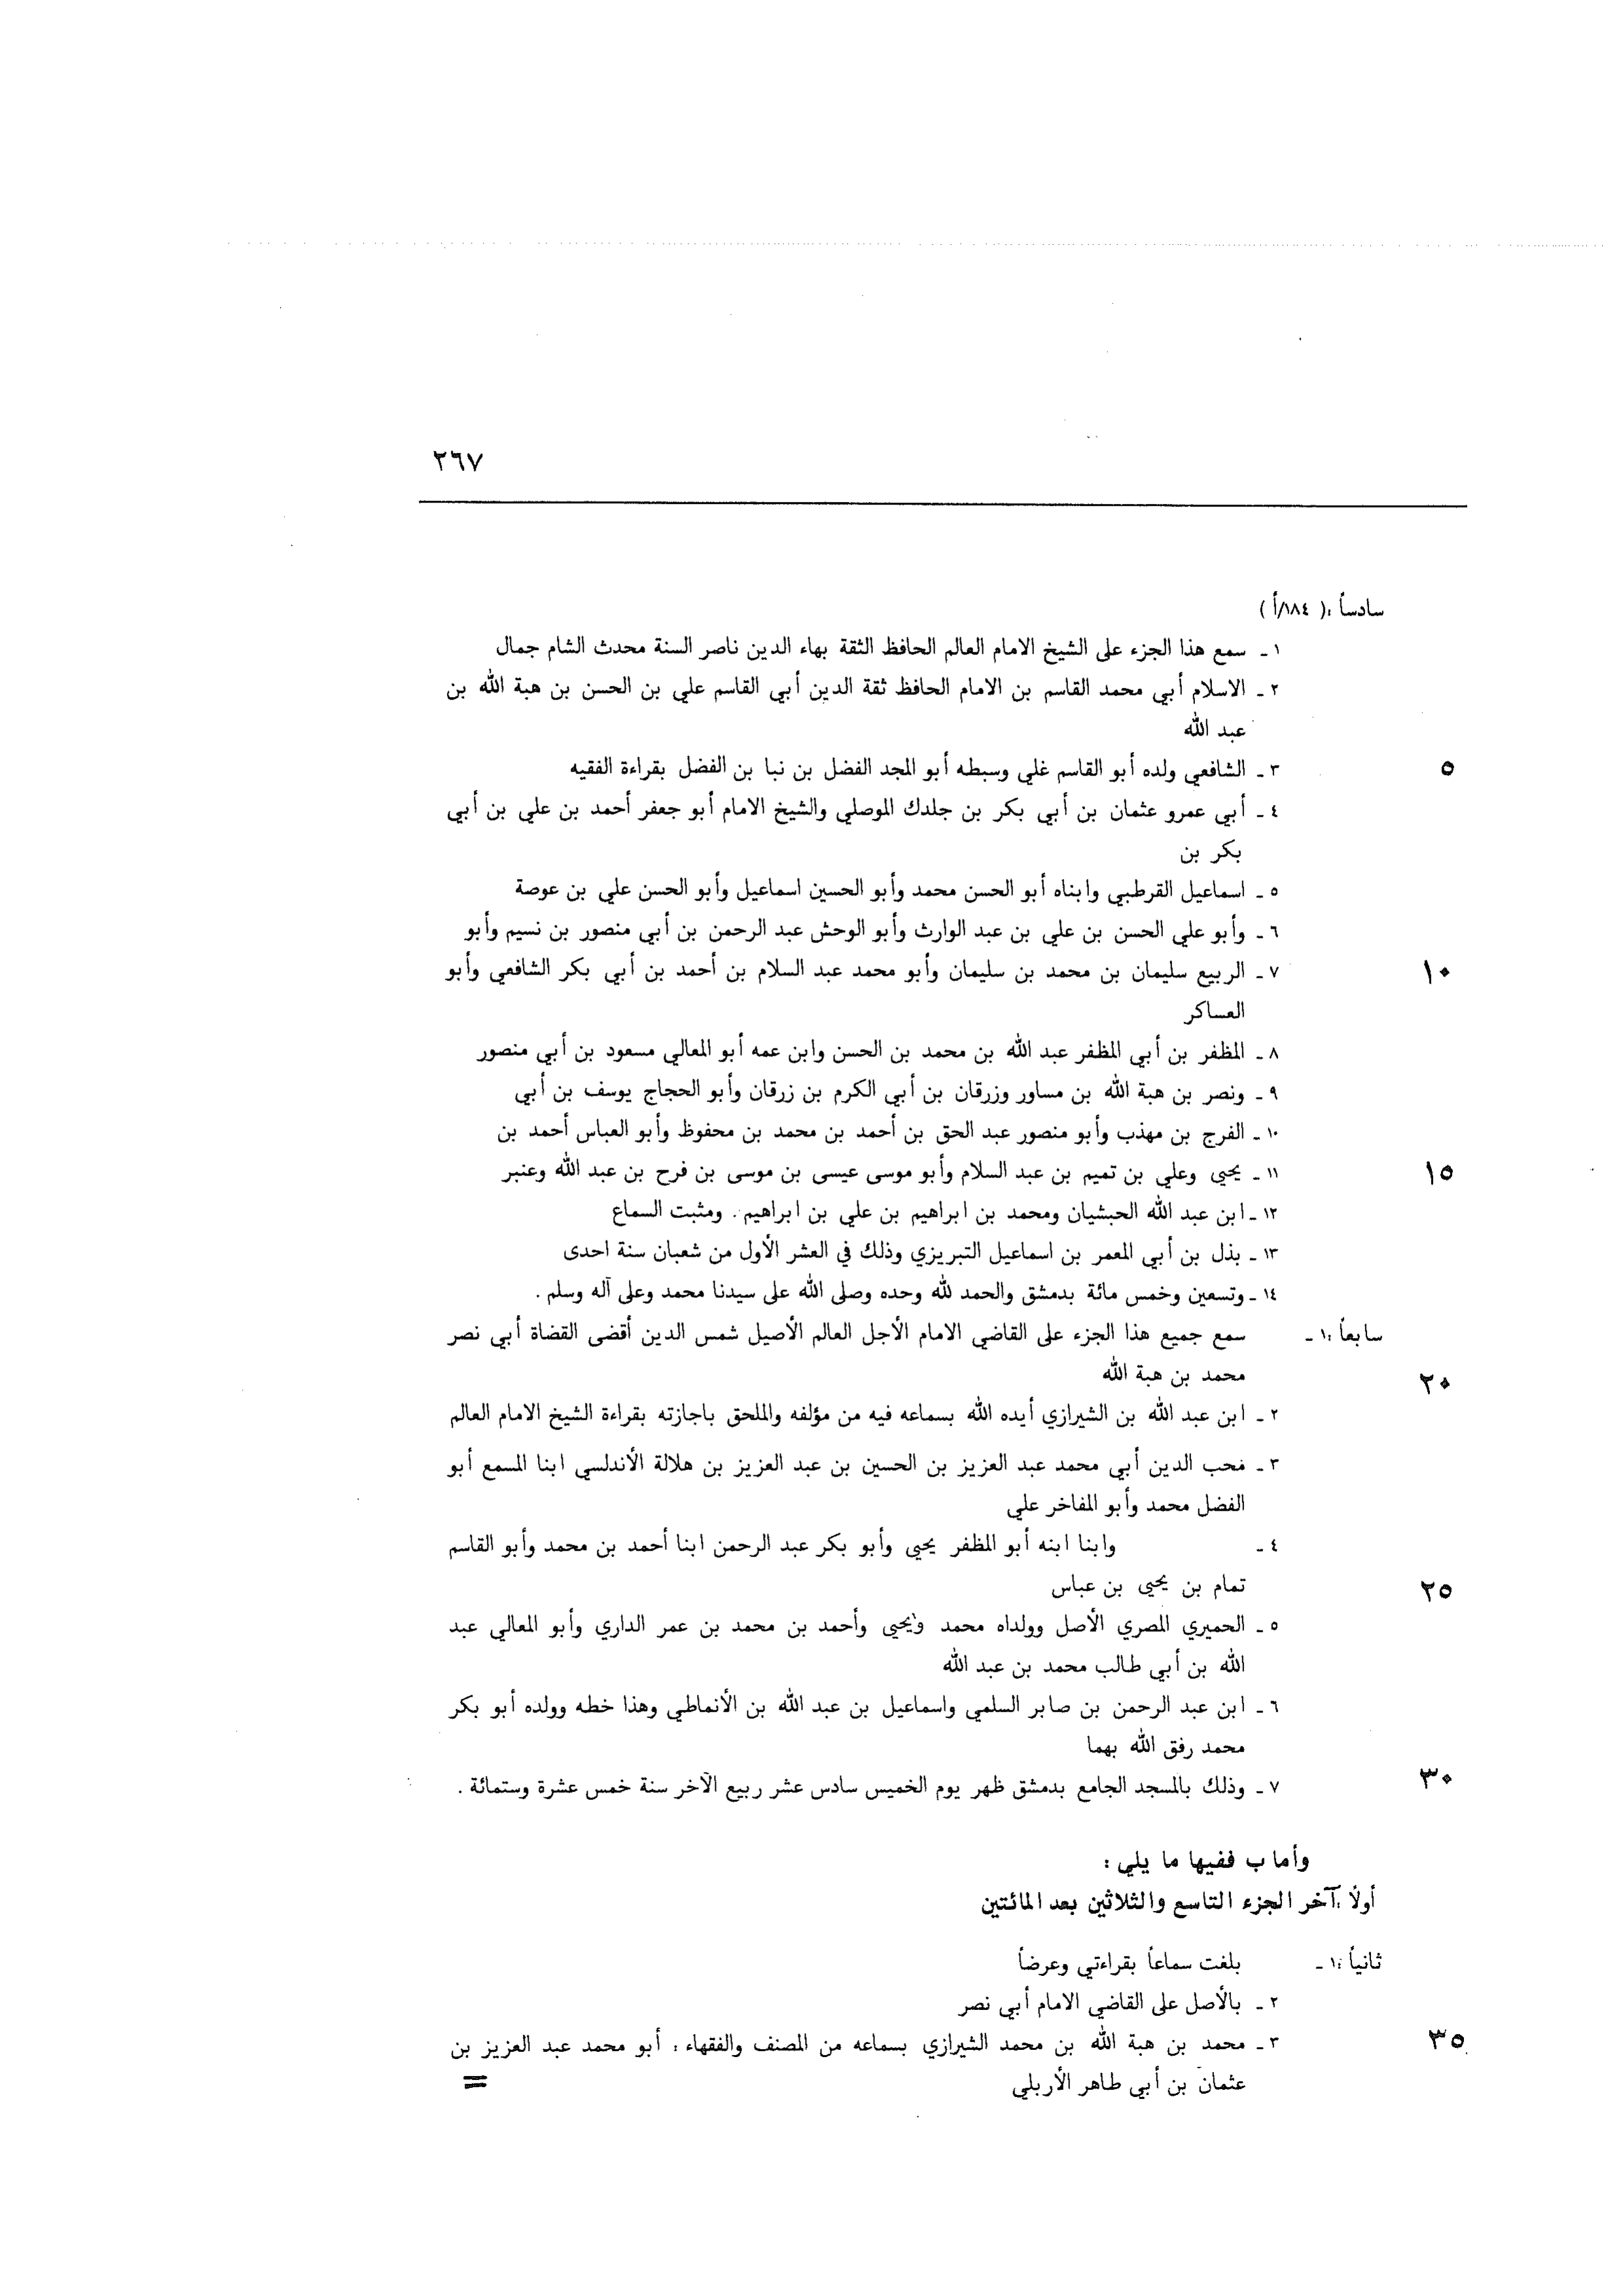 ٢٦٧
سادساً : ( ١٨٤/أ )
١ ـ سمع هذا الجزء على الشيخ الامام العالم الحافظ الثقة بهاء الدين ناصر السنة محدث الشام جمال
٢ ـ الاسلام أبي محمد القاسم بن الامام الحافظ ثقة الدين أبي القاسم علي بن الحسن بن هبة الله بن
عبد الله
٥ ٣ ـ الشافعي ولده أبو القاسم غلي وسبطه أبو المجد الفضل بن نبا بن الفضل بقراءة الفقيه
٤ ـ أبي عمرو عثمان بن أبي بكر بن جلدك الموصلي والشيخ الامام أبو جعفر أحمد بن علي بن أبي
بكر بن
٥ ـ اسماعيل القرطبي وابناه أبو الحسن محمد وأبو الحسين اسماعيل وأبو الحسن علي بن عوصة
٦ ـ وأبو علي الحسن بن علي بن عبد الوارث وأبو الوحش عبد الرحمن بن أبي منصور بن نسيم وأبو
١٠ ٧ ـ الربيع سليمان بن محمد بن سليمان وأبو محمد عبد السلام بن أحمد بن أبي بكر الشافعي وأبو
العساكر
٨ ـ المظفر بن أبي المظفر عبد الله بن محمد بن الحسن وابن عمه أبو المعالي مسعود بن أبي منصور
٩ ـ ونصر بن هبة الله بن مساور وزرقان بن أبي الكرم بن زرقان وأبو الحجاج يوسف بن أبي
١٠ ـ الفرج بن مهذب وأبو منصور عبد الحق بن أحمد بن محمد بن محفوظ وأبو العباس أحمد بن
١٥ ١١ ـ يحيى وعلي بن تميم بن عبد السلام وأبو موسى عيسى بن موسى بن فرح بن عبد الله وعنبر
١٢ ـ ابن عبد الله الحبشيان ومحمد بن ابراهيم بن علي بن ابراهيم . ومثبت السماع
١٣ ـ بذل بن أبي المعمر بن اسماعيل التبريزي وذلك في العشر الأول من شعبان سنة احدى
١٤ ـ وتسعين وخمس مائة بدمشق والحمد لله وحده وصلى الله على سيدنا محمد وعلى آله وسلم .
سابعاً : ١ ـ سمع جميع هذا الجزء على القاضي الامام الأجل العالم الأصيل شمس الدين أقضى القضاة أبي نصر
٢٠ محمد بن هبة الله
٢ ـ ابن عبد الله بن الشيرازي أيده الله بسماعه فيه من مؤلفه والملحق باجازته بقراءة الشيخ الامام العالم
٣ ـ محب الدين أبي محمد عبد العزيز بن الحسين بن عبد العزيز بن هلالة الأندلسي ابنا المسمع أبو
الفضل محمد وأبو المفاخر علي
٤ ـ وابنا ابنه أبو المظفر يحيى وأبو بكر عبد الرحمن ابنا أحمد بن محمد وأبو القاسم
٢٥ تمام بن يحيى بن عباس
٥ ـ الحميري المصري الأصل وولداه محمد ويحيى وأحمد بن محمد بن عمر الداري وأبو المعالي عبد
الله بن أبي طالب محمد بن عبد الله
٦ ـ ابن عبد الرحمن بن صابر السلمي واسماعيل بن عبد الله بن الأنماطي وهذا خطه وولده أبو بكر
محمد رفق الله بهما
٣٠ ٧ ـ وذلك بالمسجد الجامع بدمشق ظهر يوم الخميس سادس عشر ربيع الآخر سنة خمس عشرة وستمائة .
وأما ب ففيها ما يلي :
أولًا : آخر الجزء التاسع والثلاثين بعد المائتين
ثانياً : ١ ـ بلغت سماعاً بقراءتي وعرضاً
٢ ـ بالأصل على القاضي الامام أبي نصر
٣٥ ٣ ـ محمد بن هبة الله بن محمد الشيرازي بسماعه من المصنف والفقهاء : أبو محمد عبد العزيز بن
عثمان بن أبي طاهر الأربلي =